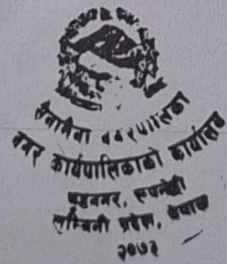 सैनामैना नगरपालिका
नगर कार्यपालिकाको कार्यालय
मुर्गिया, रुपन्देही
लुम्बिनी प्रदेश, नेपाल
२०७३